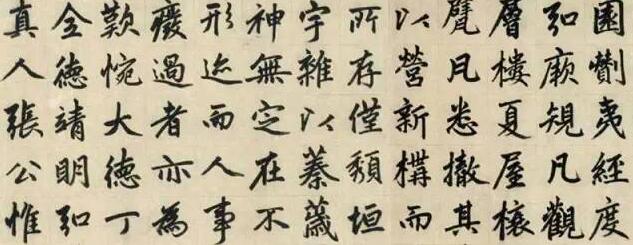 園剗夷經度
弘厥規凡觀
層樓夏屋榱
甓凡悉撤其
以營新構而
所存僅頹垣
宇雜以蓁薉
神無定在不
形迹而人事
廢過者亦為
歎惋大德丁
全德靖明弘
真人張公惟